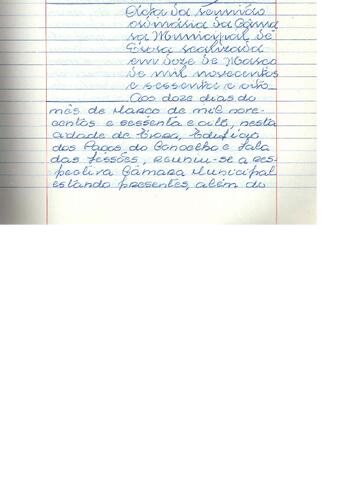 Acta da reunião
ordinária da Câma
ra Municipal de
Évora realizada
em doze de Março
de mil novecentos
e sessenta e oito_
Aos doze dias do
mês de Março de mil nove-
centos e sessenta e oito, nesta
cidade de Évora, Edifício
dos Paços do Concelho e Sala
das Sessões, reuniu-se a res-
pectiva Câmara Municipal
estando presentes, além do